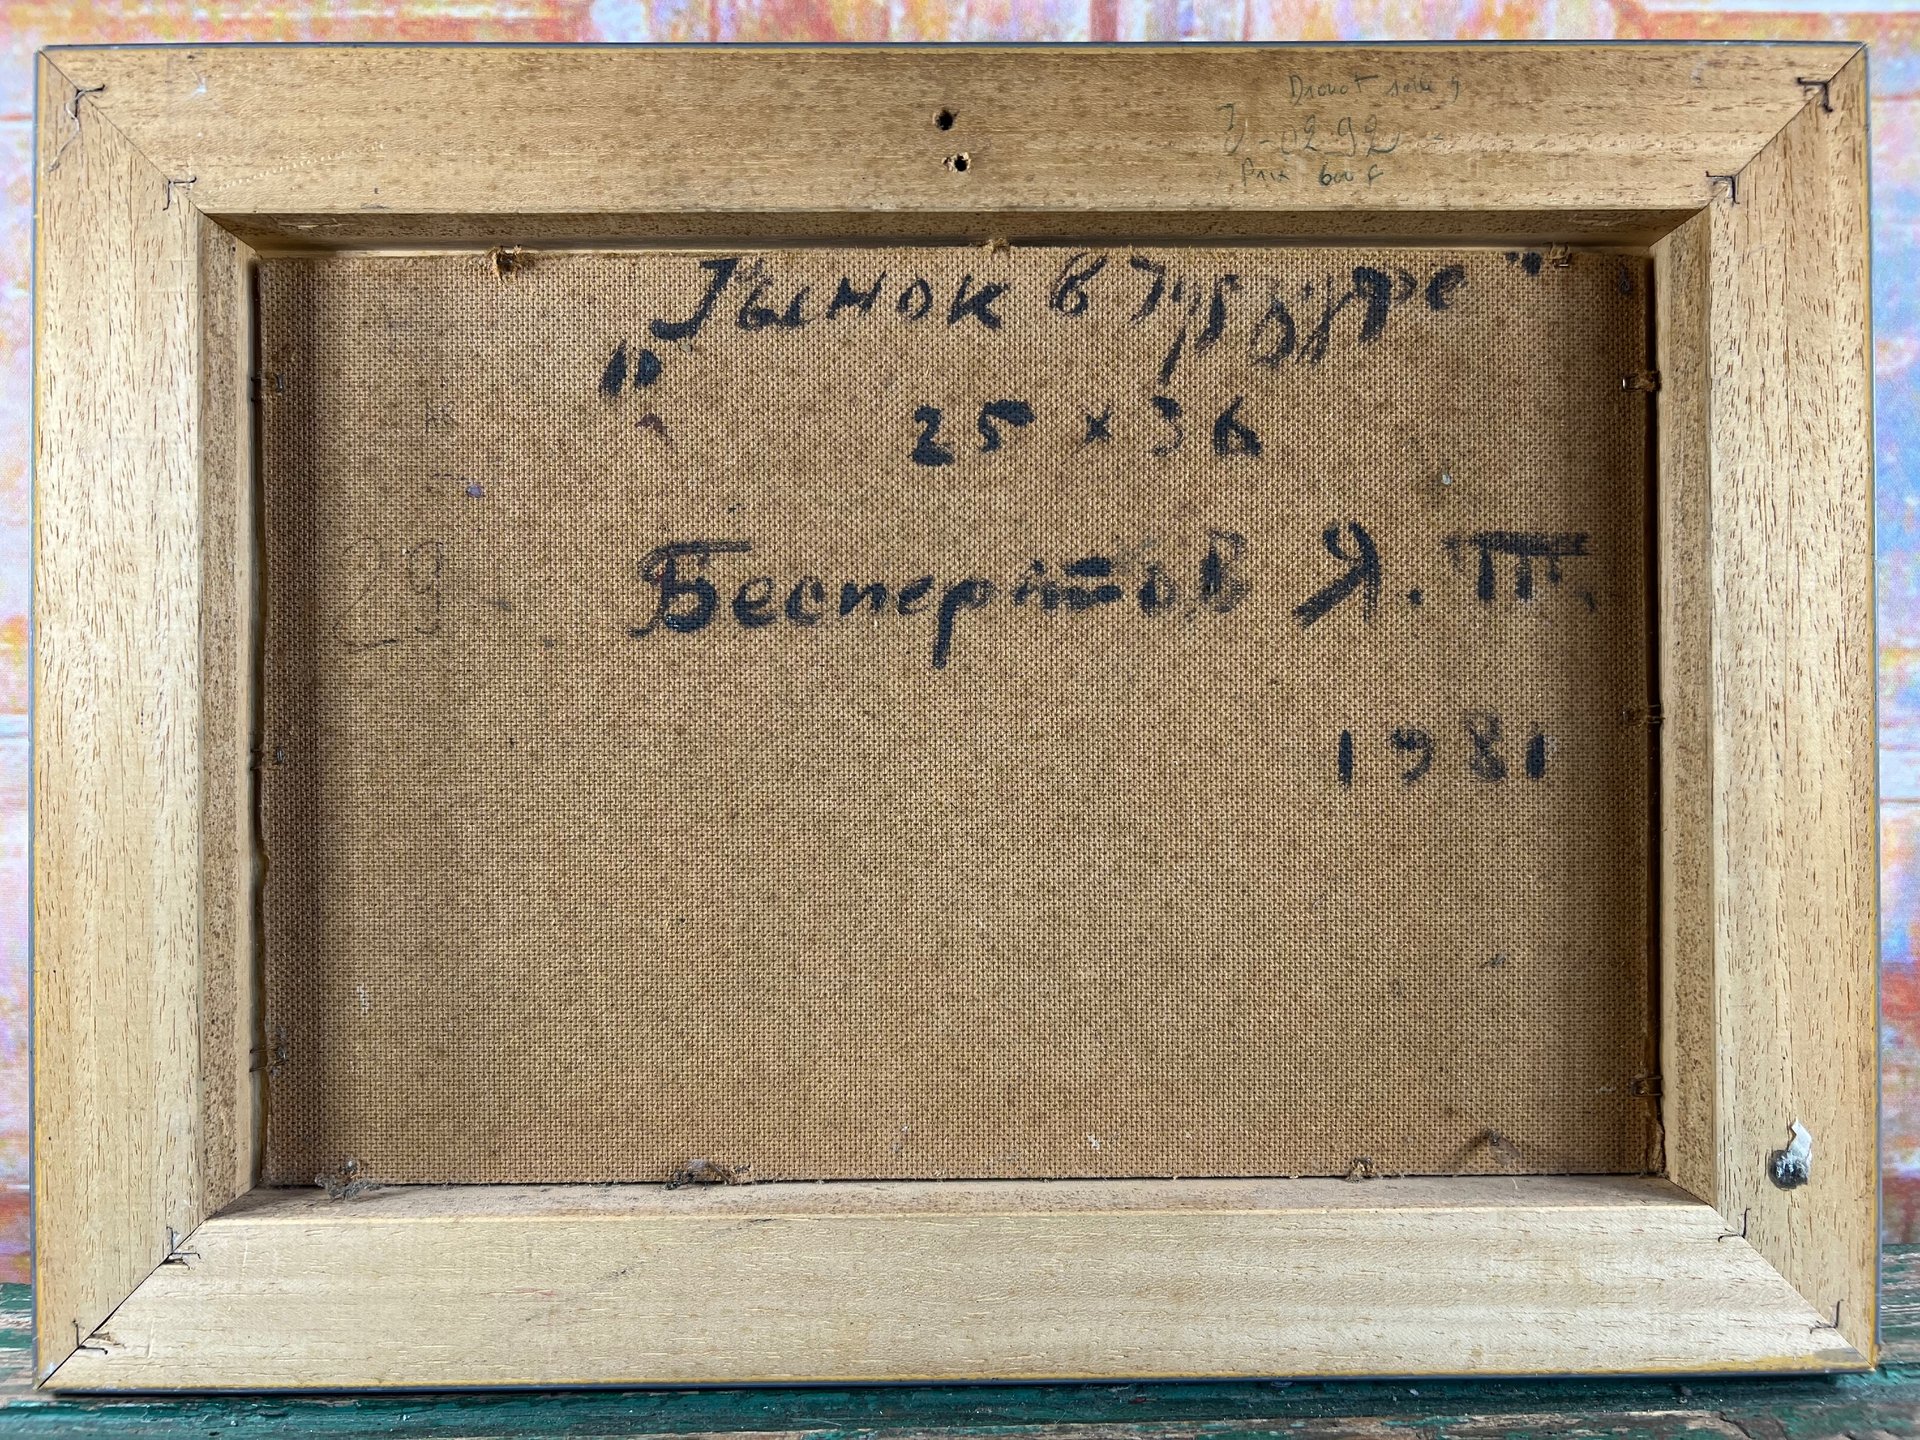 Drouot salle 9
02 92
Prix 600 F
„Рынок в Гурзуфе"
25 x 36
Бесперстов Я. Т.
1981